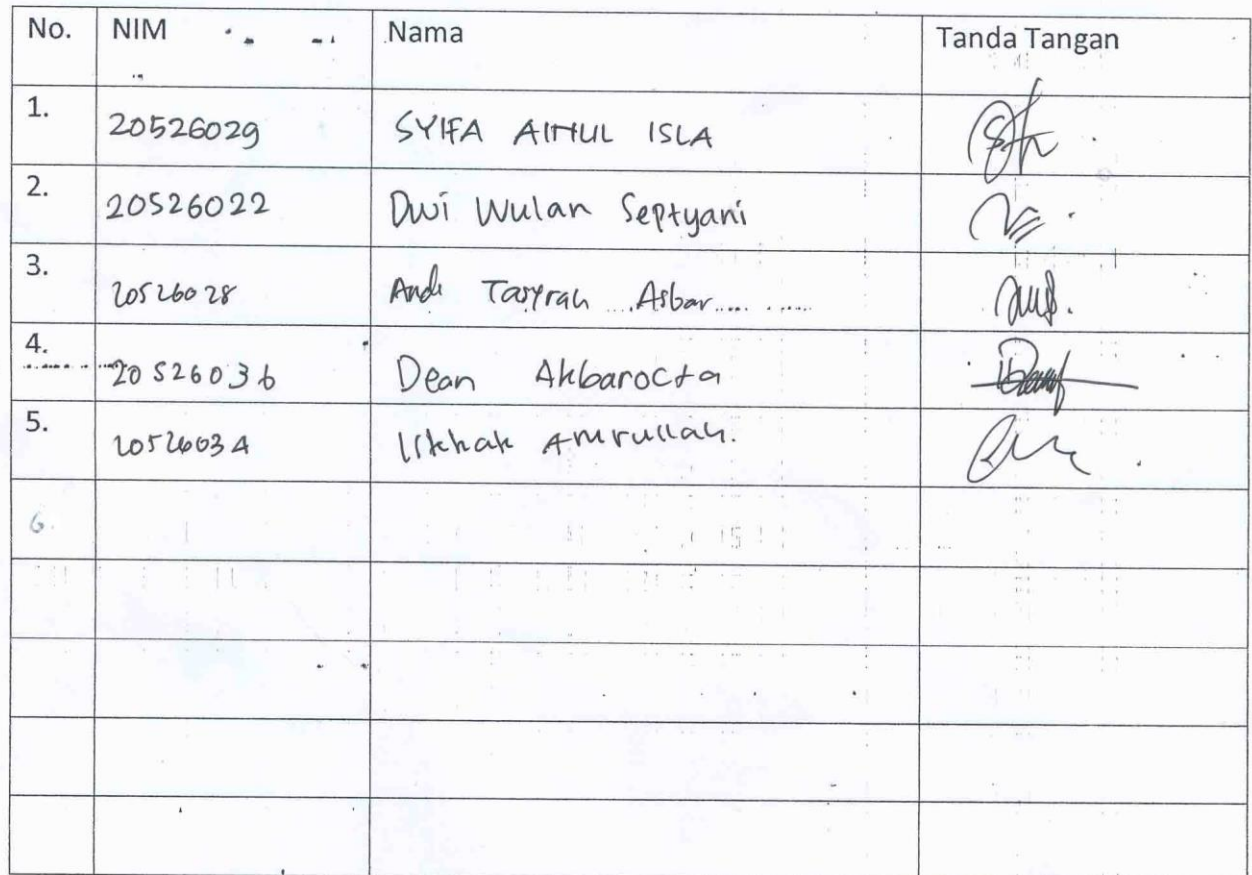 No. NIM Nama Tanda Tangan
1. 20526029 SYIFA AINUL ISLA
2. 20526022 Dwi Wulan Septyani
3. 20526028 Andi Tasyrah Asbar
4. 20526036 Dean Akbarocta
5. 20526034 Iskhak Amrullah.
6.